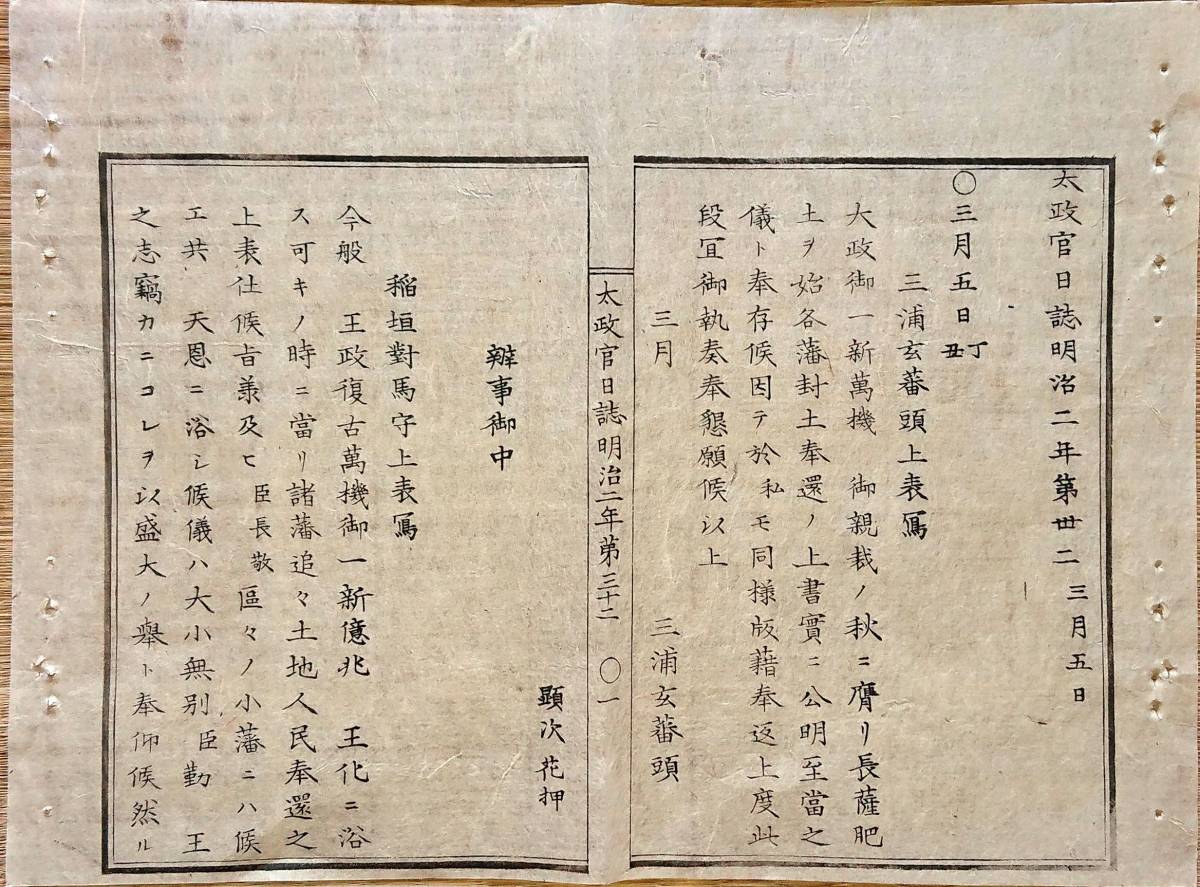 太政官日誌明治二年第卅二 三月五日
〇三月五日丁丑
三浦玄蕃頭上表寫
大政御一新萬機 御親裁ノ秋ニ膺リ長薩肥
土ヲ始各藩封土奉還ノ上書實ニ公明至當之
儀ト奉存候因テ於私モ同様版藉奉返上度此
段宜御執奏奉懇願候以上
三月 三浦玄蕃頭
太政官日誌明治二年第三十二 〇一
顕次花押
辨事御中
稲垣對馬守上表寫
今般 王政復古萬機御一新億兆 王化ニ浴
ス可キノ時ニ當リ諸藩追々土地人民奉還之
上表仕候旨兼及ヒ臣長敬區々ノ小藩ニハ候
エ共 天恩ニ浴シ候儀ハ大小無別臣勤 王
之志竊カニコレヲ以盛大ノ舉ト奉仰候然ル